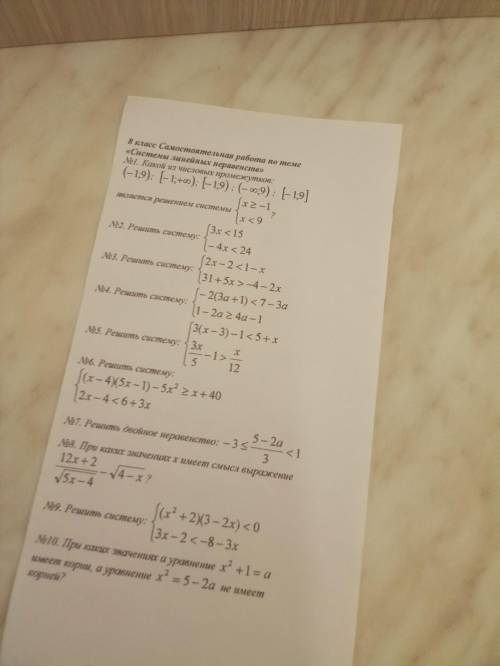 8 класс Самостоятельная работа по теме
«Системы линейных неравенств»
№1. Какой из числовых промежутков:
(−1;9); [−1;+∞); [−1;9) ; (−∞;9) ; [−1;9]
является решением системы {x ≥ −1
x < 9 ?
№2. Решить систему: {3x < 15
−4x < 24
№3. Решить систему: {2x − 2 < 1 − x
31 + 5x > −4 − 2x
№4. Решить систему: {−2(3a + 1) < 7 − 3a
1 − 2a ≥ 4a − 1
№5. Решить систему: {3(x − 3) − 1 < 5 + x
3x/5 − 1 > x/12
№6. Решить систему:
{(x − 4)(5x − 1) − 5x² ≥ x + 40
2x − 4 < 6 + 3x
№7. Решить двойное неравенство: −3 ≤ (5 − 2a)/3 < 1
№8. При каких значениях x имеет смысл выражение
(12x + 2)/√(5x − 4) − √(4 − x) ?
№9. Решить систему: {(x² + 2)(3 − 2x) < 0
3x − 2 < −8 − 3x
№10. При каких значениях a уравнение x² + 1 = a
имеет корни, а уравнение x² = 5 − 2a не имеет
корней?